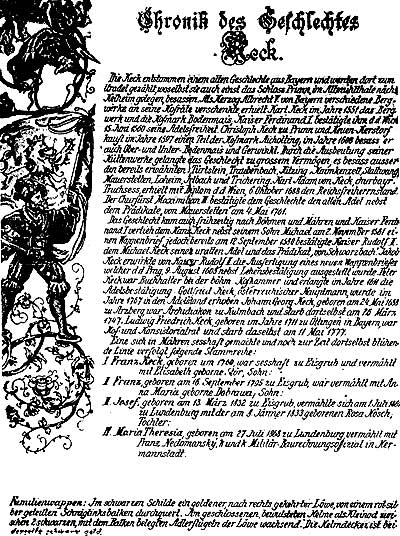 Chronik des Geschlechtes
Keck.
Die Keck entstammen einem alten Geschlechte aus Bayern und werden dort zum
Uradel gezählt, woselbst sie auch einst das Schloss Prunn, im Altmühlthale nächst
Kelheim gelegen, besassen. Als Herzog Albrecht V. von Bayern verschiedene Berg-
werke an seine Hofräte verschenkte erhielt Karl Keck im Jahre 1551 das Berg-
werk und die Hofmark Bodenmais. Kaiser Ferdinand I. bestätigte ihm d.d. Wien
15 Juni 1560 seine Adelsfreiheit. Christoph Keck zu Prunn und
kauft im Jahre 1597 einen Teil der Hofmark Aicholting, im Jahre 1606 besass er
auch Ober- und Unter- und Durch die Ausbeutung seiner
Hüttenwerke gelangte das Geschlecht zu grossem Vermögen, es besass ausser
den bereits erwähnten, Türnstein, Traubenbach,
Mauerstetten, und Karl Adam von Keck,
Truchsess, erhielt mit Diplom d.d. Wien, 6 October 1688 den Reichsfreiherrnstand.
Der Churfürst Maximilian II bestätigte dem Geschlechte den alten Adel nebst
dem Prädikate, von Mauerstetten am 4 Mai 1701.
Das Geschlecht kam auch frühzeitig nach Böhmen und Mähren und Kaiser Ferdi-
nand I verlieh dem Hans Keck nebst seinem Sohn Michael am 2 Mai 1561 ei-
nen Wappenbrief, jedoch bereits am 12 September 1580 bestätigte Kaiser Rudolf II.
dem Michael Keck den uralten Adel und das Prädikat, von Schwarzbach. Jakob
Keck erwirkte von Kaiser Rudolf II die Ausfertigung eines neuen Wappenbriefes
welcher d.d. Prag, 9 August 1605 nebst Lehensbestätigung ausgestellt wurde. Peter
Keck war Buchhalter bei der böhm. Hofkammer und erlangte im Jahre 1611 die
Adelsbestätigung. Gottfried Keck, österreichischer Hauptmann, wurde im
Jahre 1707 in den Adelstand erhoben. Johann Georg Keck, geboren am 24 Mai 1668
zu Arzberg war Archidiakon zu Kulmbach und starb dortselbst am 20 März
1747. Ludwig Friedrich Keck, geboren im Jahre 1711 zu Öttingen in Bayern, war
Hof- und Konsistorialrat und starb daselbst am 11 Mai 1777.
Eine sich in Mähren sesshaft gemachte und noch zur Zeit dortselbst blühen-
de Linie verfolgt folgende Stammreihe:
I Franz Keck, geboren um 1760, war sesshaft zu Eisgrub und vermählt
mit Elisabeth geborne Gör, Sohn:
II Franz, geboren am 16 September 1795 zu Eisgrub, war vermählt mit An-
na Maria geborne Dobrawa, Sohn:
III Josef, geboren am 13 März 1832 zu Eisgrub, vermählte sich am 1 Juli
zu Lundenburg mit der am 8 Jänner 1833 geborenen Rosa Nösch,
Tochter:
IV Maria Theresia, geboren am 27 Juli 1868 zu Lundenburg vermählt mit
Franz Nedomansky, k und k Militär-Baurechnungsofficial in Her-
mannstadt.
Familienwappen: Im schwarzen Schilde ein goldener, nach rechts gekehrter Löwe, von einem rot-sil-
ber geteilten Schräglinksbalken durchquert. Am geschlossenen, bewulsteten Helme als Kleinod zwi-
schen 2 schwarzen, mit dem Balken belegten Adlerflügeln der Löwe wachsend. Die Helmdecken ist bei-
derseits schwarz gold.